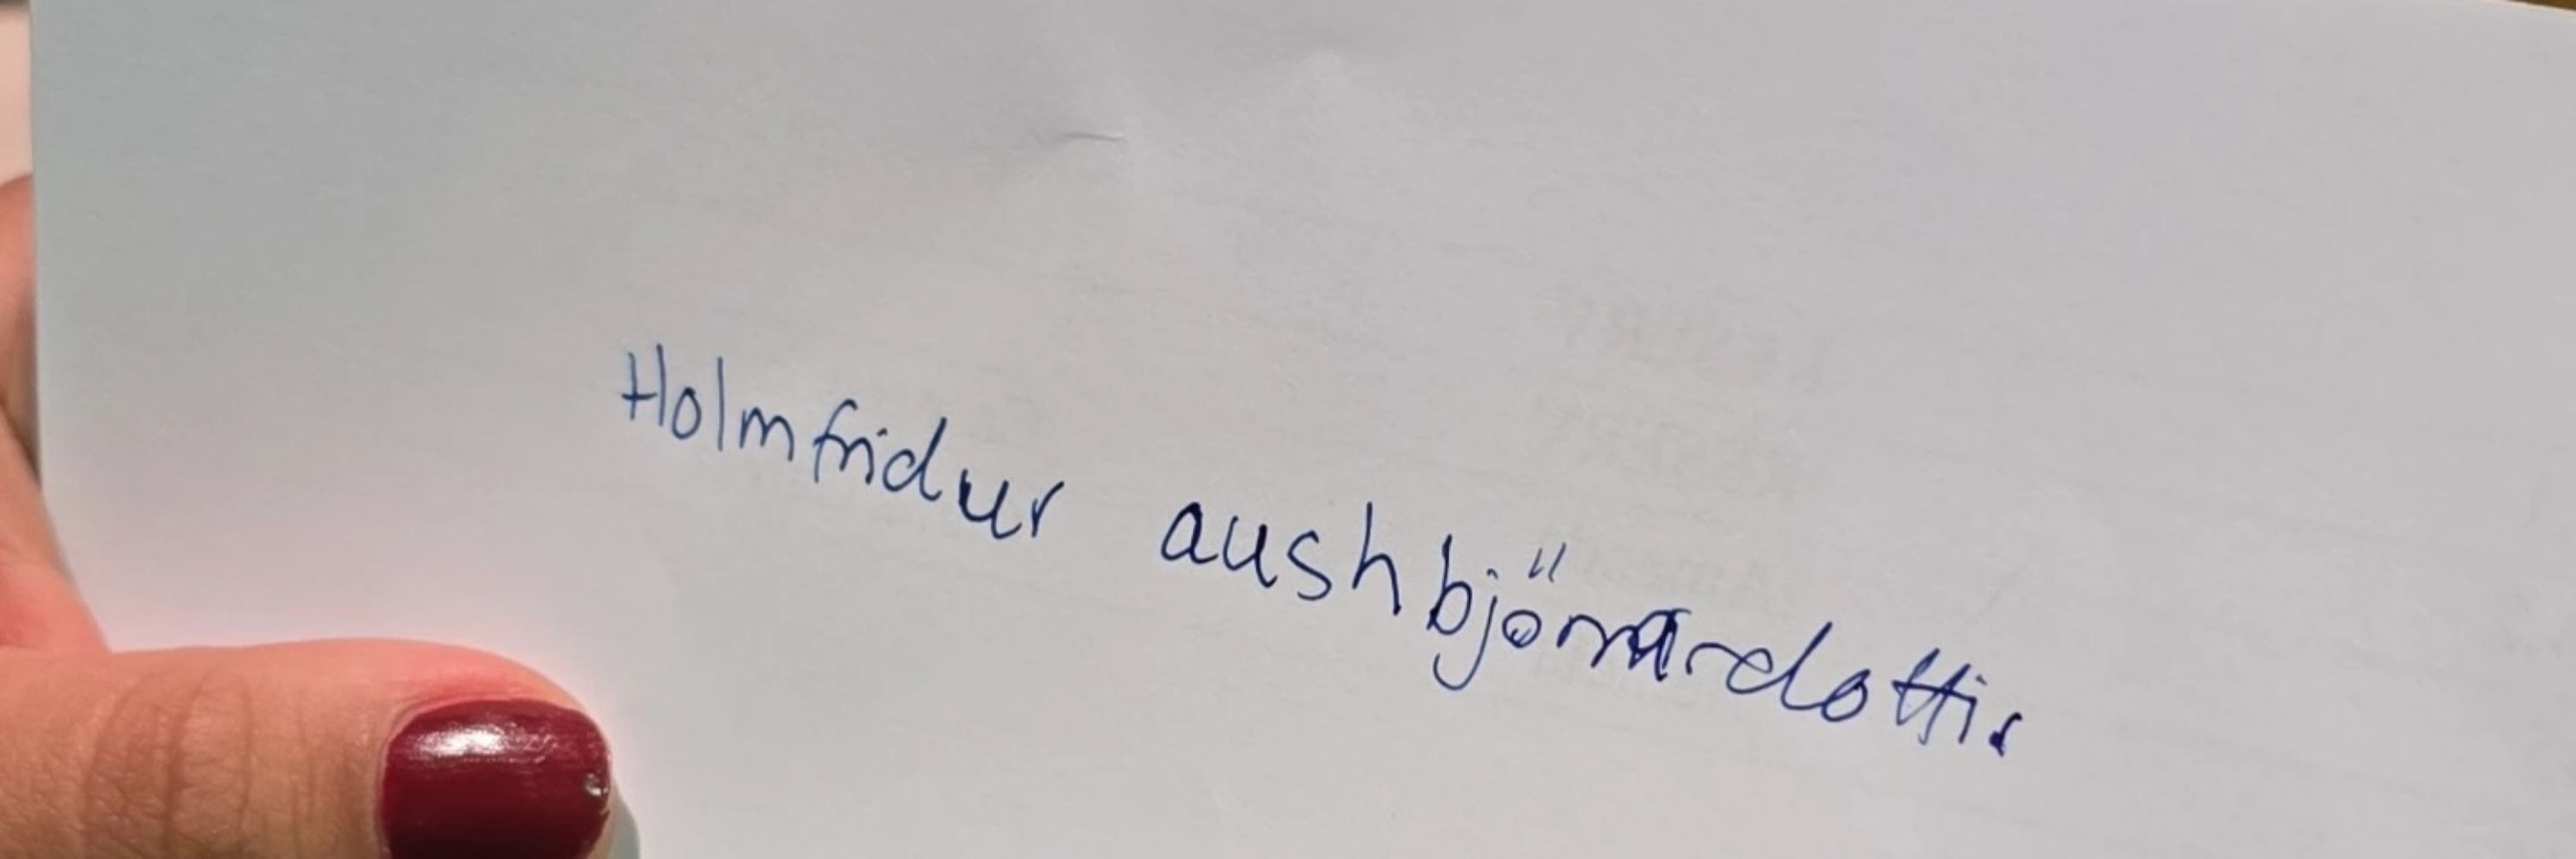 Holmfridur aushbjörnardottir